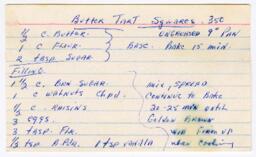 Butter Tart Squares 350
1/2 c. Butter. Ungreased 9" Pan
1 c Flour. Base. Bake 15 min.
2 tbsp Sugar
Filling.
1 1/2 c. Brn Sugar. mix, spread
1 c Walnuts Chpd. Continue to Bake
1/2 c. Raisins 20-25 min until
3 eggs. Golden Brown
3 tbsp. Flr. will firm up
1/2 tsp B.Pdr. 1 tsp vanilla when cooling